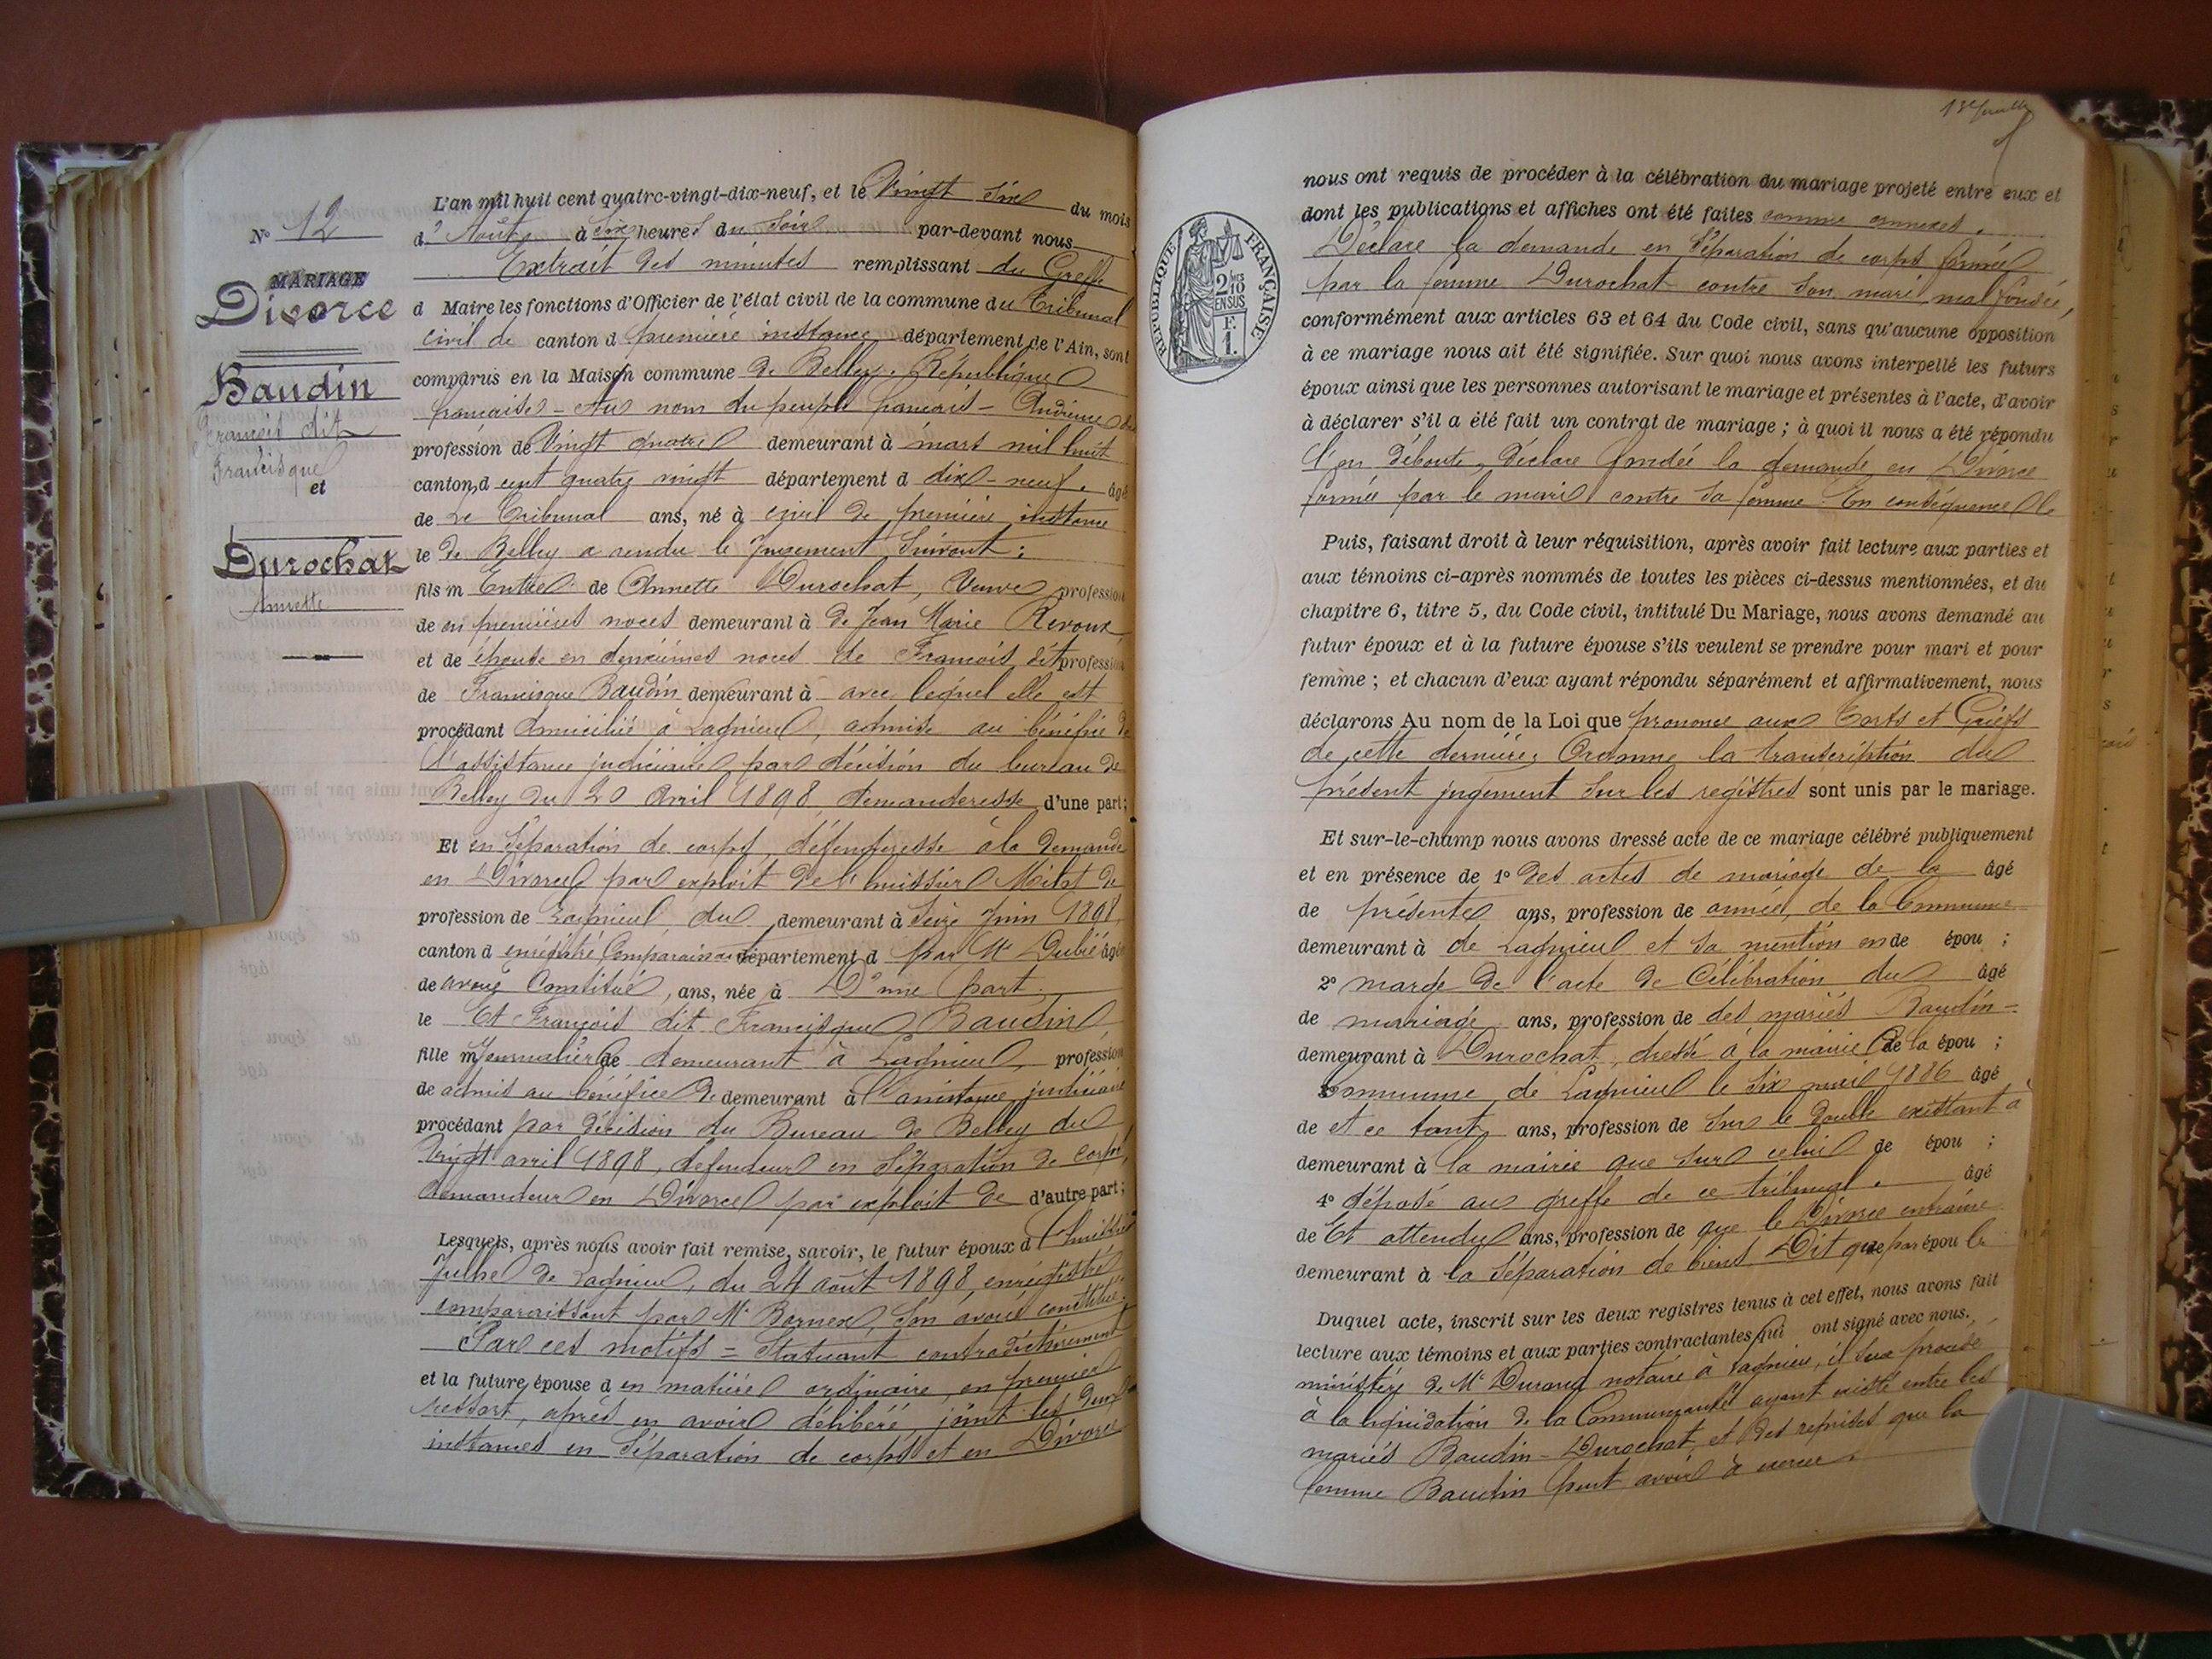 N° 12
MARIAGE
Divorce
Baudin
François dit
Francisque
et
Durochat
Annette
L'an mil huit cent quatre-vingt-dix-neuf, et le Vingt six du mois
d'Août, à six heures du soir par-devant nous
Extrait des minutes remplissant du Greffe
d Maire les fonctions d'Officier de l'état civil de la commune du Tribunal
civil de canton d première instance département de l'Ain, sont
comparus en la Maison commune de Belley. République
française - Au nom du peuple français - Audience du
profession de Vingt quatre demeurant à mars mil huit
canton d cent quatre vingt département d dix-neuf. âgé
de Le Tribunal ans, né à civil de première instance
le de Belley a rendu le Jugement Suivant :
fils m Entre de Annette Durochat, Veuve profession
de en premières noces demeurant à de Jean Marie Revoux
et de épouse en deuxièmes noces de François dit profession
de Francisque Baudin demeurant à avec lequel elle est
procédant domiciliée à Lagnieu, admise au bénéfice de
l'assistance judiciaire par décision du bureau de
Belley du 20 Avril 1898 demanderesse d'une part;
Et en Séparation de corps, défenderesse à la demande
en Divorce par exploit de l'huissier de
profession de Lagnieu du demeurant à Seize Juin 1898
canton d enregistré Comparaissant département d par Me Dubié âgée
de avoué Constitué, ans, née à D'une part,
le Et François dit Francisque Baudin
fille m Journalier de demeurant à Lagnieu, profession
de admis au bénéfice de demeurant à l'assistance judiciaire
procédant par décision du Bureau de Belley du
Vingt avril 1898, défendeur en Séparation de corps,
demandeur en Divorce par exploit de d'autre part;
Lesquels, après nous avoir fait remise, savoir, le futur époux d l'huissier
de Lagnieu, du 24 août 1898, enregistré
comparaissant par Me Bornex, son avoué constitué.
Par ces motifs = Statuant contradictoirement
et la future épouse d en matière ordinaire, en premier
ressort, après en avoir délibéré, joint les deux
instances en Séparation de corps et en Divorce
nous ont requis de procéder à la célébration du mariage projeté entre eux et
dont les publications et affiches ont été faites comme connexes.
Déclare la demande en Séparation de corps formée
par la femme Durochat contre son mari mal fondée,
conformément aux articles 63 et 64 du Code civil, sans qu'aucune opposition
à ce mariage nous ait été signifiée. Sur quoi nous avons interpellé les futurs
époux ainsi que les personnes autorisant le mariage et présentes à l'acte, d'avoir
à déclarer s'il a été fait un contrat de mariage ; à quoi il nous a été répondu
l'en déboute, Déclare fondée la demande en Divorce
formée par le mari contre sa femme. En conséquence le
Puis, faisant droit à leur réquisition, après avoir fait lecture aux parties et
aux témoins ci-après nommés de toutes les pièces ci-dessus mentionnées, et du
chapitre 6, titre 5, du Code civil, intitulé Du Mariage, nous avons demandé au
futur époux et à la future épouse s'ils veulent se prendre pour mari et pour
femme ; et chacun d'eux ayant répondu séparément et affirmativement, nous
déclarons Au nom de la Loi que prononce aux Torts et Griefs
de cette dernière, Ordonne la transcription du
présent jugement sur les registres sont unis par le mariage.
Et sur-le-champ nous avons dressé acte de ce mariage célébré publiquement
et en présence de 1° des actes de mariage de la âgé
de présente ans, profession de année, de la Commune
demeurant à de Lagnieu et sa mention en de épou ;
2° marge de l'acte de Célébration du âgé
de mariage ans, profession de des mariés Baudin-
demeurant à Durochat, dressé à la mairie de la épou ;
3° Commune de Lagnieu le Six 1886 âgé
de et ce tant ans, profession de sur le double existant à
demeurant à la mairie que sur celui de épou ;
4° déposé au greffe de ce tribunal. âgé
de Et attendu ans, profession de que le Divorce entraîne
demeurant à la Séparation de biens Dit que par épou le
Duquel acte, inscrit sur les deux registres tenus à cet effet, nous avons fait
lecture aux témoins et aux parties contractantes qui ont signé avec nous.
ministère de Me Durand notaire à Lagnieu, il sera procédé
à la liquidation de la Communauté ayant existé entre les
mariés Baudin-Durochat, et des reprises que la
femme Baudin peut avoir à exercer.
RÉPUBLIQUE FRANÇAISE
2/10
EN SUS
F.
1.